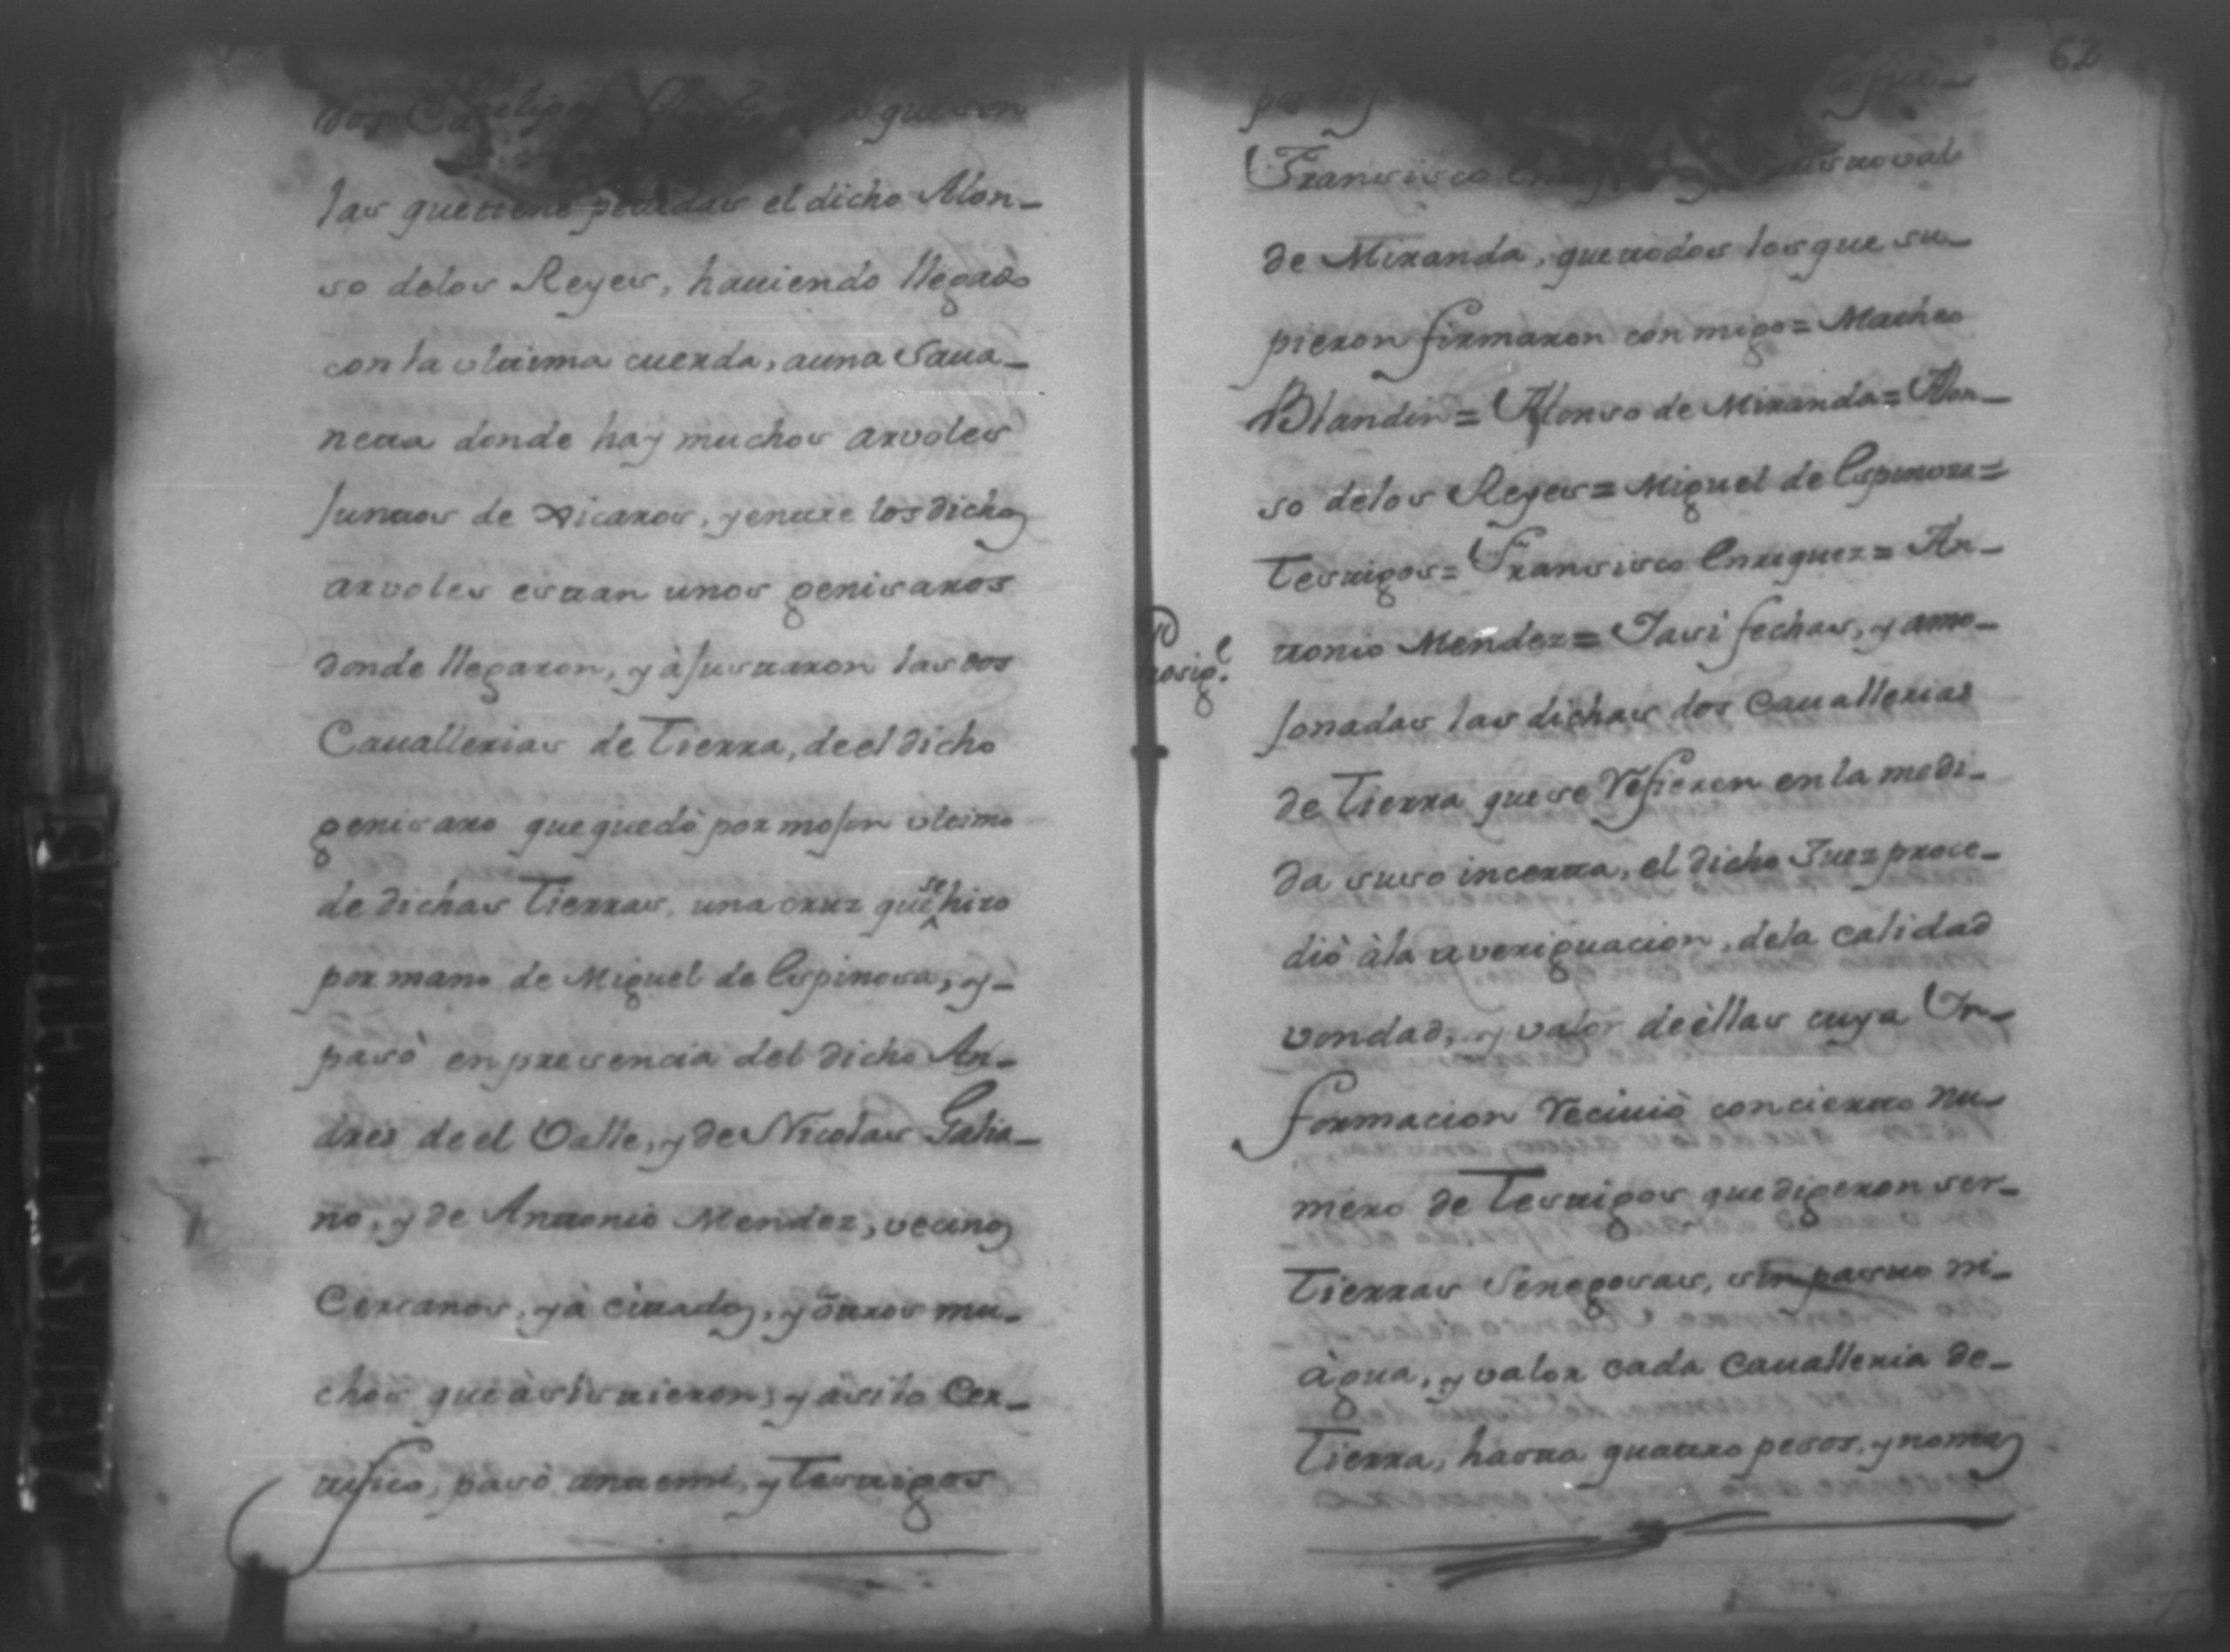 dos
las que tiene pedidas el dicho Alon-
so delos Reyes, hauiendo llegado
con la vltima cuerda, a una Saua-
neta donde hay muchos arvoles
juntos de xicaros, y entre los dichos
arvoles estan unos genisaros
donde llegaron, y àjustaron las dos
Cauallerias de Tierra, de el dicho
genisaro que quedò por mojon vltimo
de dichas Tierras, una cruz que se hizo
por mano de Miguel de Espinosa, y-
pasò en presencia del dicho An-
dres de el Valle, y de Nicolas Galia-
no, y de Antonio Mendez, vecinos
Cercanos, yà citados, y òtros mu-
chos que àsistieron; y àsi lo Cer-
tifico, pasò ante mi, y Testigos
62
Francisco
de Miranda, que todos los que su-
pieron firmaron con migo = Matheo
Blandin = Alonso de Miranda = Alon-
so delos Reyes = Miguel de Espinosa =
Testigos = Francisco Enriquez = An-
tonio Mendez = Y asi fechas, y amo-
jonadas las dichas dos Cauallerias
de Tierra que se Refieren en la medi-
da suso incerta, el dicho Juez proce-
diò àla averiguacion, dela calidad
vondad, y valor de èllas cuya In-
formacion Reciuiò con cierto nu-
mero de Testigos que digeron ser-
Tierras Senegosas, sin pasto ni-
àgua, y valor cada Caualleria de-
Tierra, hasta quatro pesos, y no mas